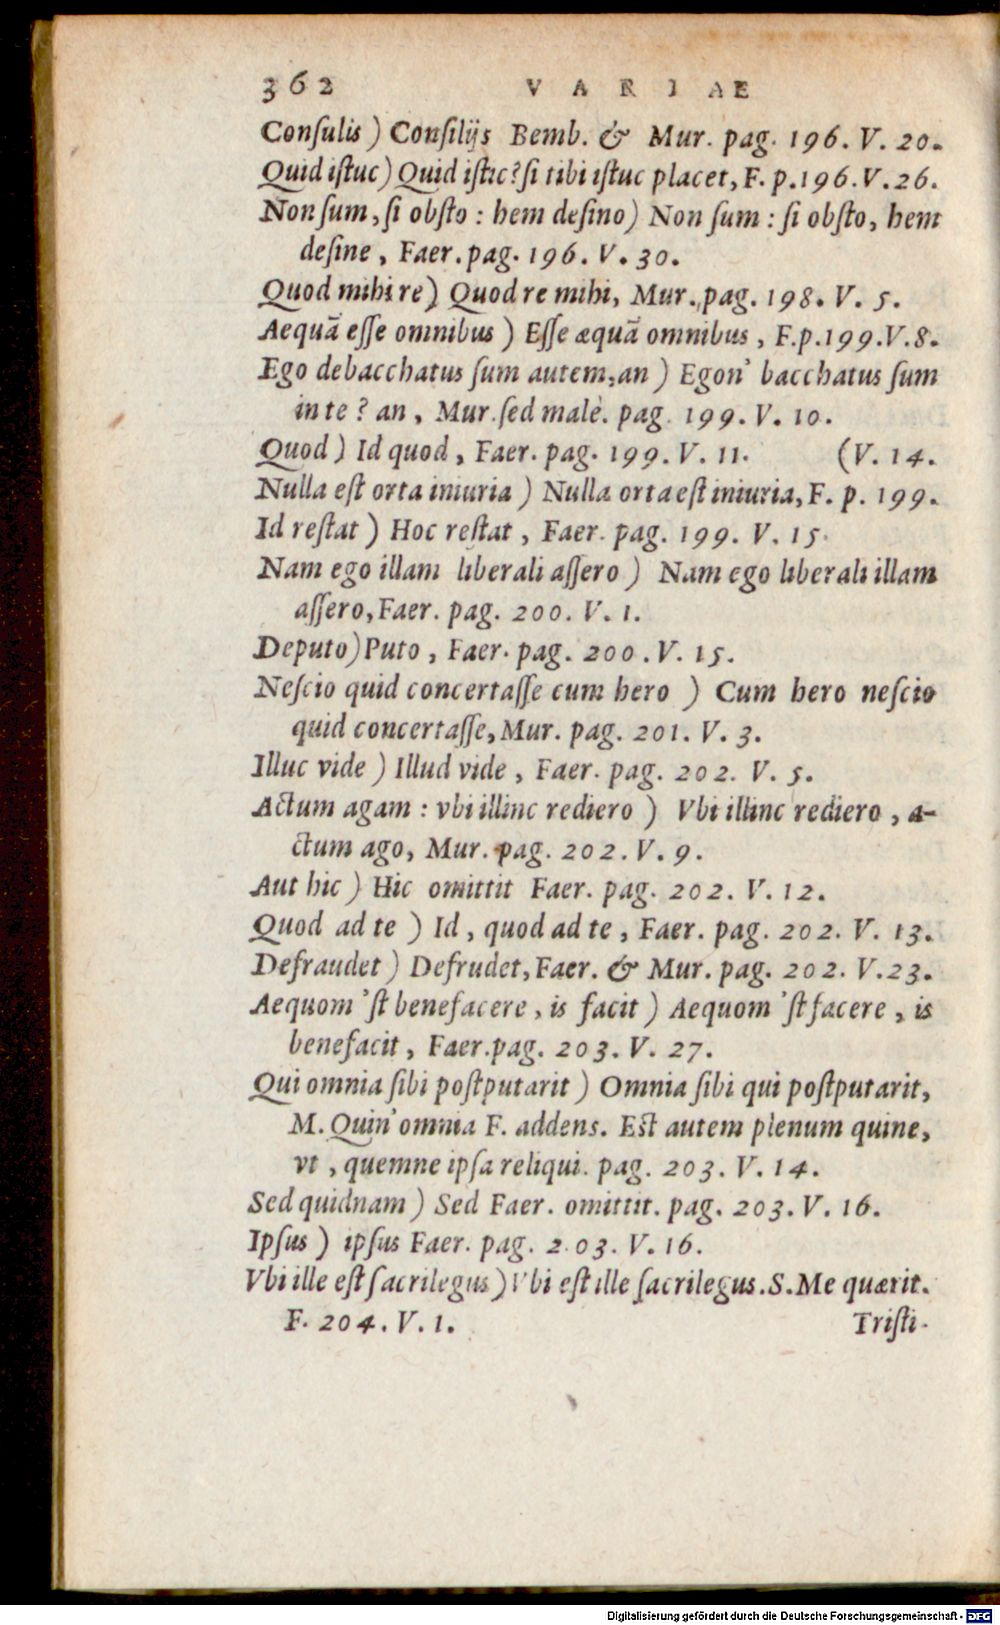 362 VARIAE
Conſulis ) Conſilijs Bemb. & Mur. pag. 196. V. 20.
Quid iſtuc) Quid iſtic? ſi tibi iſtuc placet, F. p. 196. V. 26.
Non ſum, ſi obſto : hem deſino) Non ſum : ſi obſto, hem
deſine, Faer. pag. 196. V. 30.
Quod mihi re) Quod re mihi, Mur. pag. 198. V. 5.
Aequã eſſe omnibus ) Eſſe æquã omnibus, F. p. 199. V. 8.
Ego debacchatus ſum autem, an ) Egon' bacchatus ſum
in te ? an, Mur. ſed malè. pag. 199. V. 10.
Quod ) Id quod, Faer. pag. 199. V. 11. (V. 14.
Nulla eſt orta iniuria ) Nulla orta eſt iniuria, F. p. 199.
Id reſtat ) Hoc reſtat, Faer. pag. 199. V. 15.
Nam ego illam liberali aſſero ) Nam ego liberali illam
aſſero, Faer. pag. 200. V. 1.
Deputo) Puto, Faer. pag. 200. V. 15.
Neſcio quid concertaſſe cum hero ) Cum hero neſcio
quid concertaſſe, Mur. pag. 201. V. 3.
Illuc vide ) Illud vide, Faer. pag. 202. V. 5.
Actum agam : vbi illinc rediero ) Vbi illinc rediero, a-
ctum ago, Mur. pag. 202. V. 9.
Aut hic ) Hic omittit Faer. pag. 202. V. 12.
Quod ad te ) Id, quod ad te, Faer. pag. 202. V. 13.
Defraudet ) Defrudet, Faer. & Mur. pag. 202. V. 23.
Aequom 'ſt benefacere, is facit ) Aequom 'ſt facere, is
benefacit, Faer. pag. 203. V. 27.
Qui omnia ſibi poſtputarit ) Omnia ſibi qui poſtputarit,
M. Quin' omnia F. addens. Eſt autem plenum quine,
vt, quemne ipſa reliqui. pag. 203. V. 14.
Sed quidnam ) Sed Faer. omittit. pag. 203. V. 16.
Ipſus ) ipſus Faer. pag. 203. V. 16.
Vbi ille eſt ſacrilegus ) Vbi eſt ille ſacrilegus. S. Me quærit.
F. 204. V. 1. Triſti-
Digitalisierung gefördert durch die Deutsche Forschungsgemeinschaft - DFG